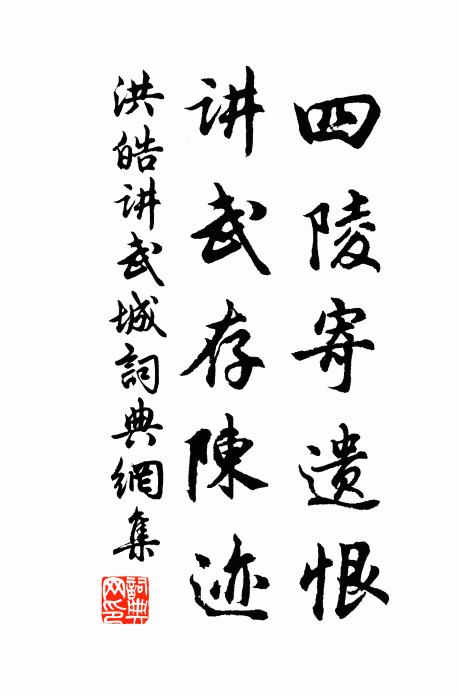 四陵寄遗恨
讲武存陳迹
洪皓讲武城詞典網集
詞典网印